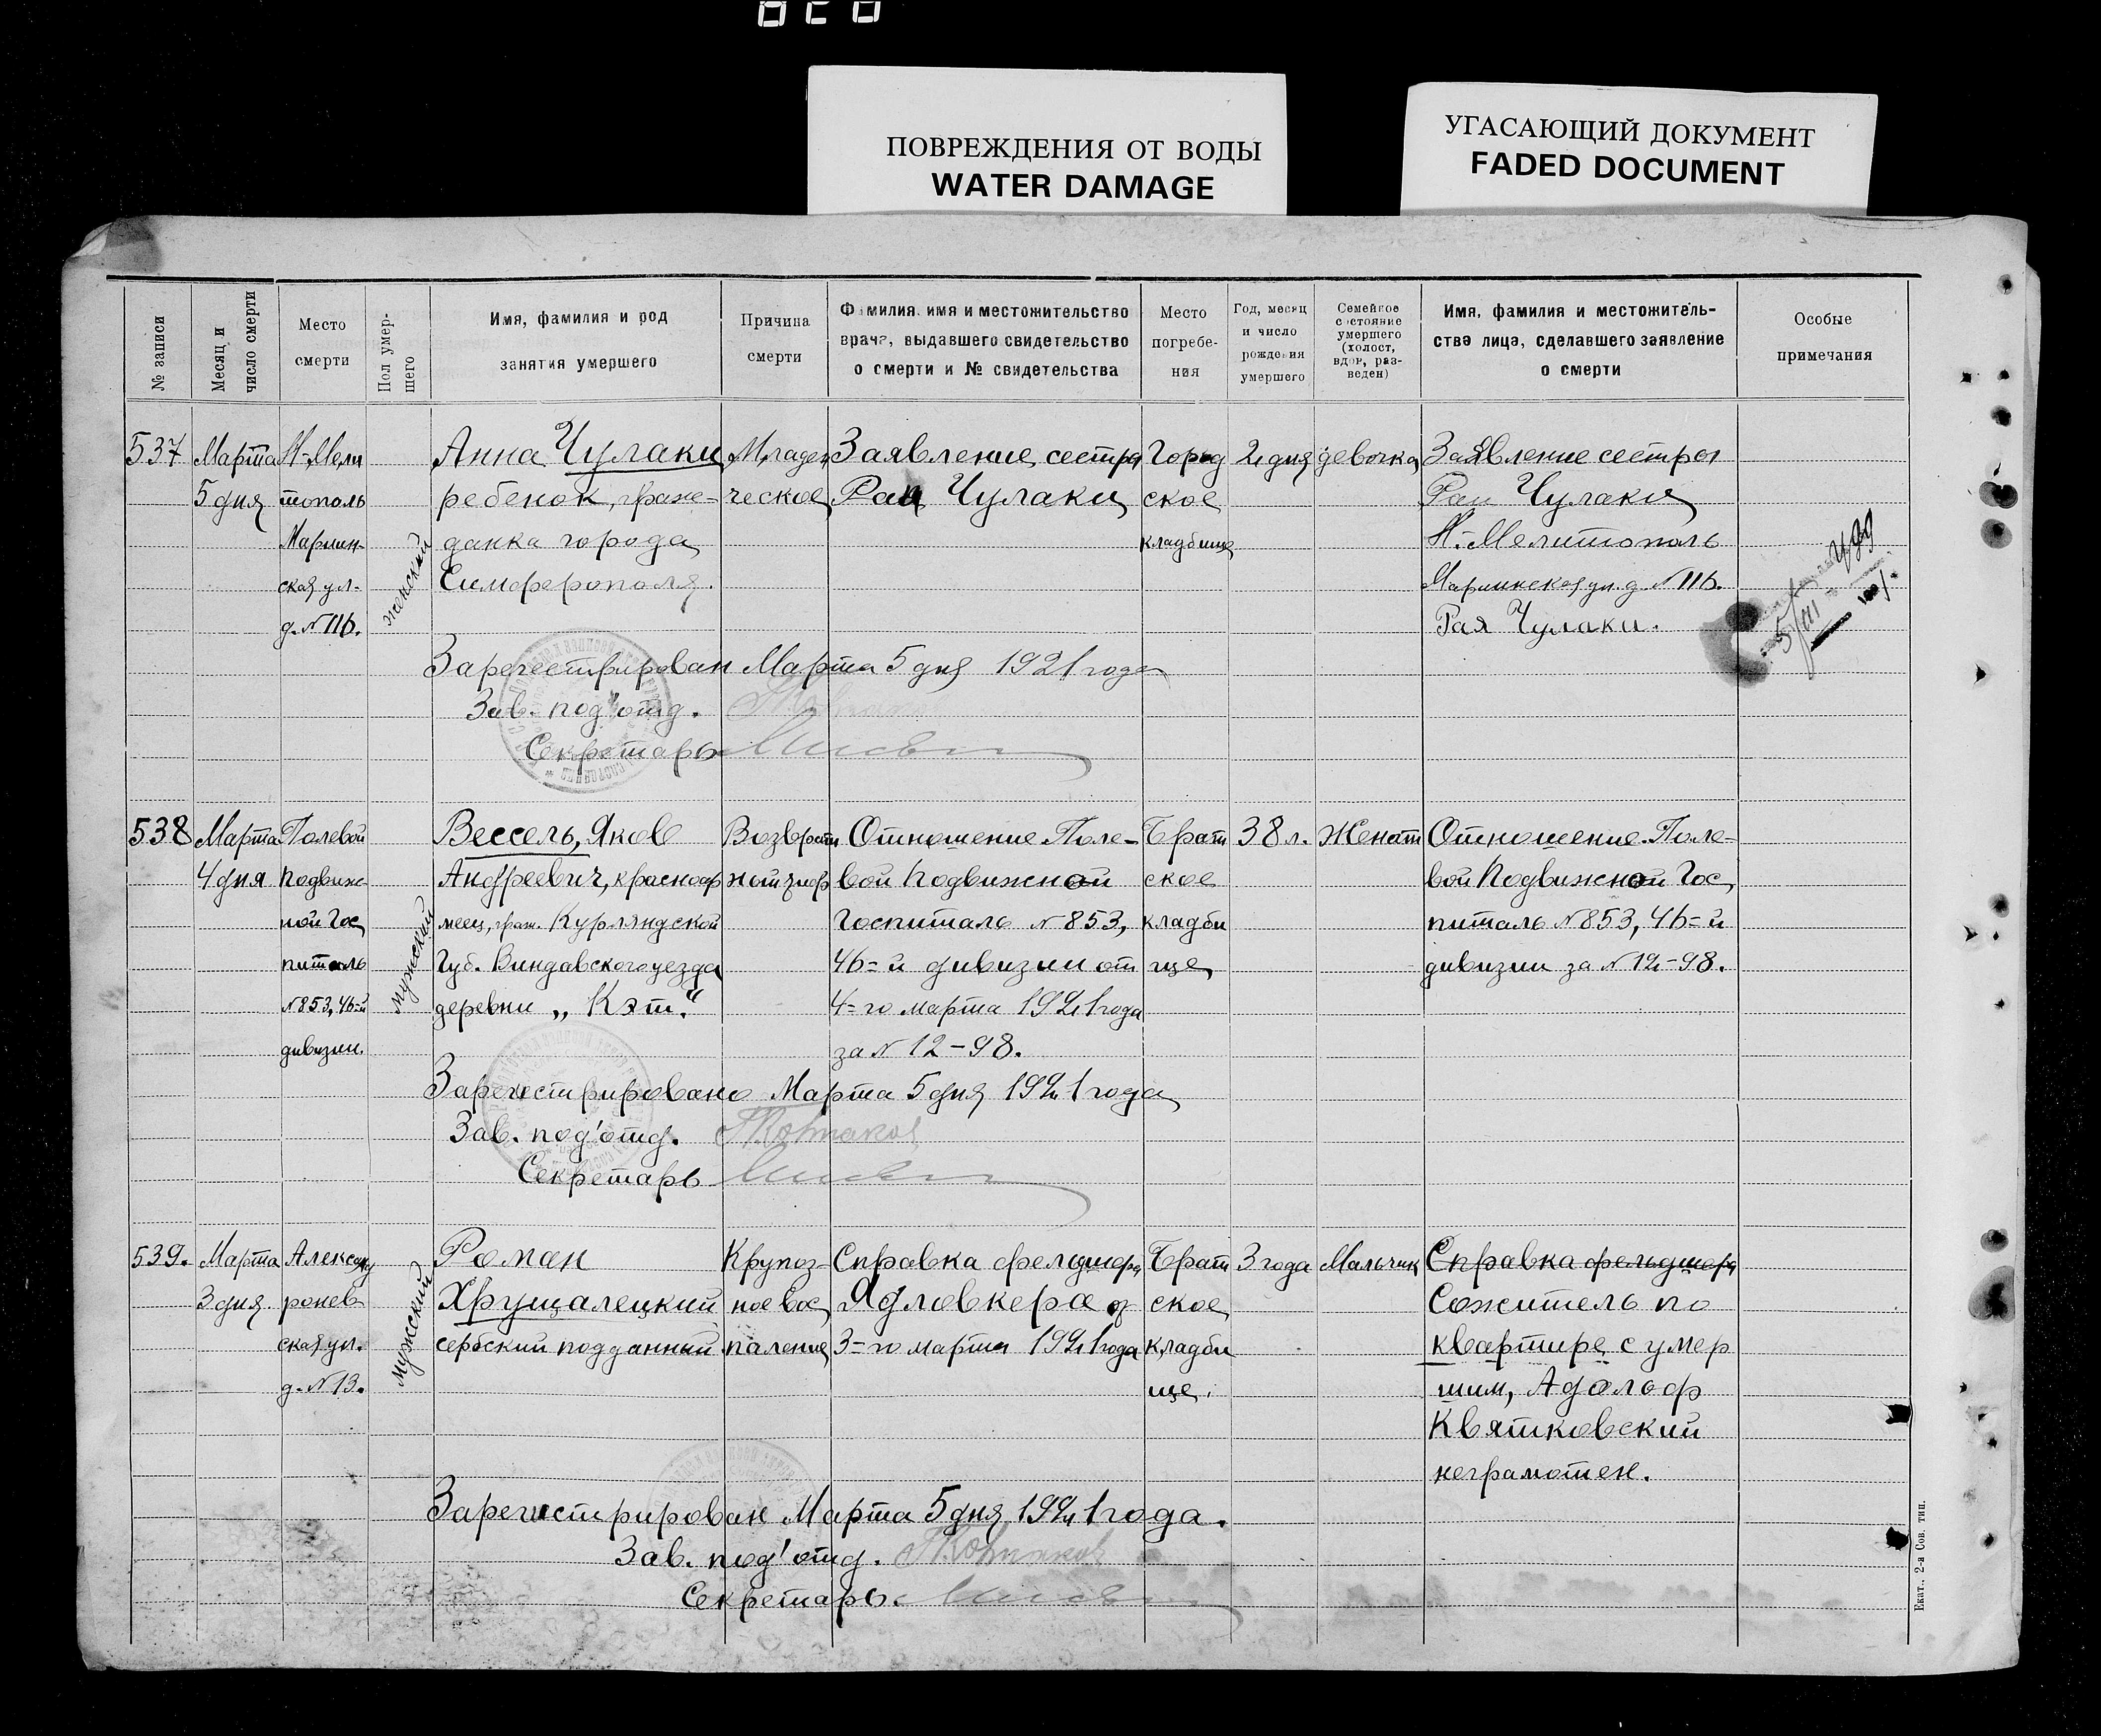 ПОВРЕЖДЕНИЯ ОТ ВОДЫ
WATER DAMAGE
УГАСАЮЩИЙ ДОКУМЕНТ
FADED DOCUMENT
№ записи
Месяц и
число смерти
Место
смерти
Пол умер-
шего
Имя, фамилия и род
занятия умершего
Причина
смерти
Фамилия, имя и местожительство
врача, выдавшего свидетельство
о смерти и № свидетельства
Место
погребе-
ния
Год, месяц
и число
рождения
умершего
Семейное
состояние
умершего
(холост,
вдов, раз-
веден)
Имя, фамилия и местожитель-
ство лица, сделавшего заявление
о смерти
Особые
примечания
537
Марта
5 дня
Н-Мели
тополь
Мариин-
ская ул.
д. №116.
женский
Анна Чулаки
ребенок, граж-
данка города
Симферополя.
Младен
ческое
Заявление сестры
Раи Чулаки
Город
ское
кладбище
2 дня
девочка
Заявление сестры
Раи Чулаки
Н.-Мелитополь
Мариинская ул. д. №116.
Рая Чулаки.
Зарегестрирован Марта 5 дня 1921 года
Зав. под'отд.
Секретарь
538
Марта
4 дня
Полевой
Подвиж
ной Гос
питаль
№853, 46=й
дивизии.
мужской
Вессель, Яков
Андреевич, красноар
меец, граж. Курляндской
Губ. Виндавского уезда
деревни „Кэт."
Возврат
ный тиф
Отношение Поле-
вой Подвижной
Госпиталь №853,
46=й дивизии от
4=го марта 1921 года
за № 12-98.
Брат
ское
кладби
ще
38 л.
Женат
Отношение Поле-
вой Подвижной Гос
питаль №853, 46=й
дивизии за №12-98.
Зарегистрировано Марта 5 дня 1921 года
Зав. под'отд.
Секретарь
539.
Марта
3 дня
Александ
ронев
ская ул.
д. №13.
мужской
Роман
Хрущалецкий
сербский подданный
Крупоз-
ное вос
паление
Справка фельдшера
Ядловкера от
3=го марта 1921 года
Брат
ское
кладби
ще.
3 года
Мальчик
Справка фельдшера
Сожитель по
квартире с умер
шим, Адольф
Квятковский
неграмотен.
Зарегистрирован Марта 5 дня 1921 года.
Зав. под'отд.
Секретарь.
Екат., 2-я Сов. тип.